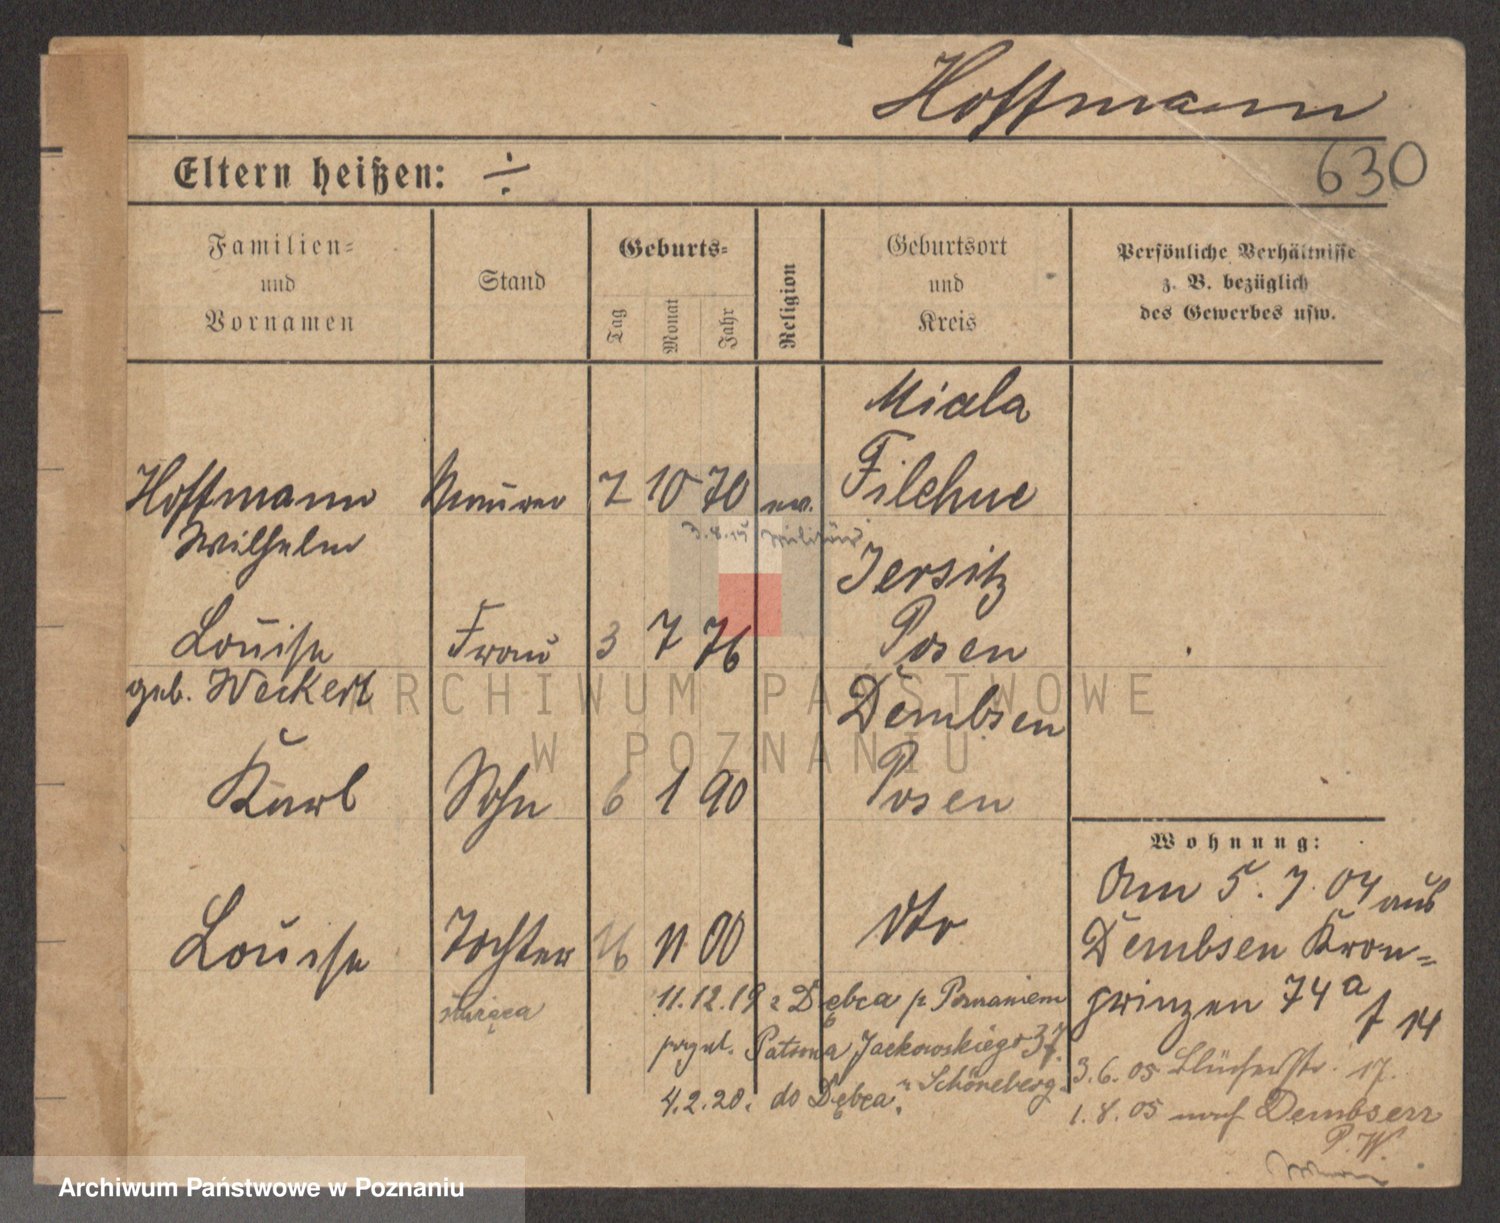 Hoffmann
630
Eltern heißen: ÷
Familien-
und
Vornamen
Stand
Geburts-
Tag
Monat
Jahr
Religion
Geburtsort
und
Kreis
Persönliche Verhältnisse
z. B. bezüglich
des Gewerbes usw.
Miala
Hoffmann Maurer 2 10 70 ev. Filehne
Wilhelm
3.8.15 Militär
Jersitz
Louise Frau 3 7 76 Posen
geb. Weckert
Dembsen
Karl Sohn 6 1 90 Posen
Louise Tochter 16 11 00 dto
służąca
11.12.19 z Dębca p Poznaniem
Patrona Jackowskiego 37.
4.2.20. do Dębca, u Schöneberg
Wohnung:
Am 5.7.04 aus
Dembsen Kron-
prinzen 74a
f 14
3.6.05 Blücherstr. 17.
1.8.05 nach Dembsen
P. W.
ARCHIWUM PAŃSTWOWE
W POZNANIU
Archiwum Państwowe w Poznaniu